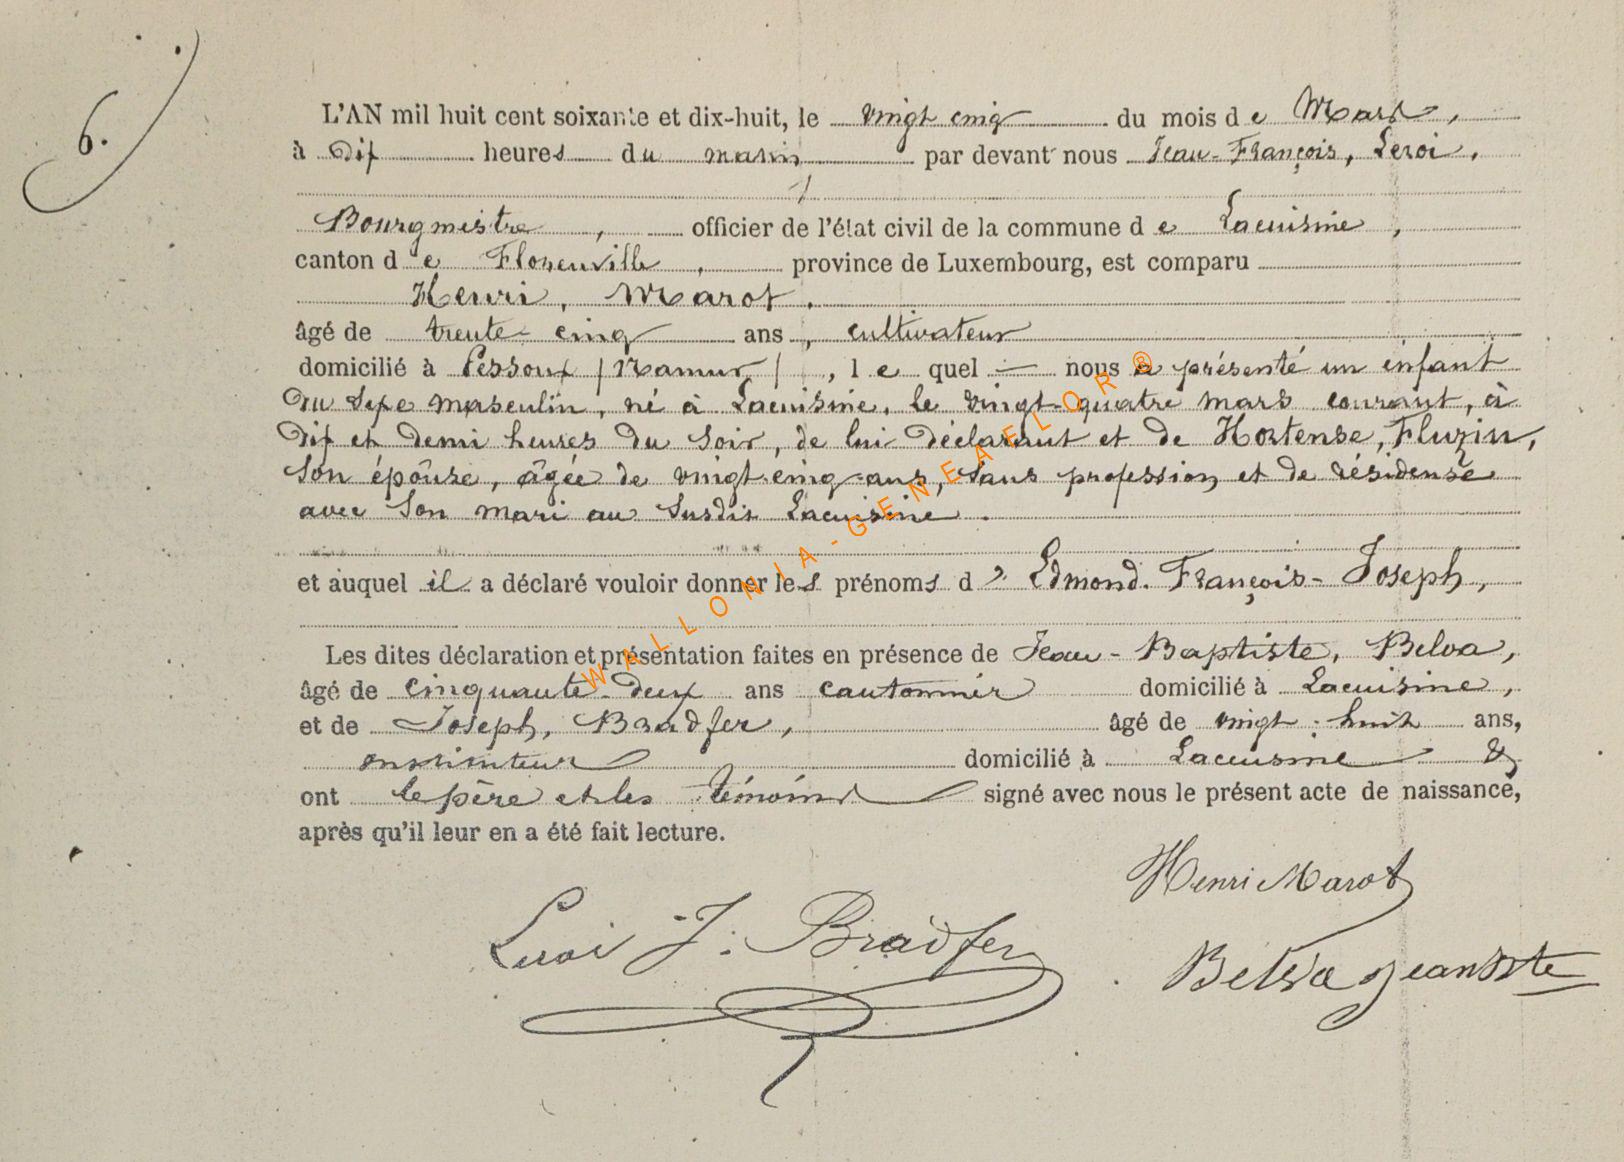 6.
L'AN mil huit cent soixante et dix-huit, le vingt cinq du mois de Mars,
à dix heures du matin par devant nous Jean-François, Leroi,
Bourgmestre, officier de l'état civil de la commune de Lacuisine,
canton de Florenville, province de Luxembourg, est comparu
Henri, Marot,
âgé de trente-cinq ans, cultivateur
domicilié à Pessoux (Namur), lequel — nous a présenté un enfant
du sexe masculin, né à Lacuisine, le vingt-quatre mars courant, à
dix et demi heures du soir, de lui déclarant et de Hortense, Fluzin,
son épouse, âgée de vingt-cinq ans, sans profession et de résidense
avec son mari au susdit Lacuisine.
et auquel il a déclaré vouloir donner les prénoms d' Edmond-François-Joseph,
Les dites déclaration et présentation faites en présence de Jean-Baptiste, Belva,
âgé de cinquante-deux ans cantonnier domicilié à Lacuisine,
et de Joseph, Bradfer, âgé de vingt-huit ans,
instituteur domicilié à Lacuisine &
ont le père et les témoins signé avec nous le présent acte de naissance,
après qu'il leur en a été fait lecture.
Henri Marot
Leroi J: Bradfer
Belva Jean Bte
WALLONIA-GENEAELOR®